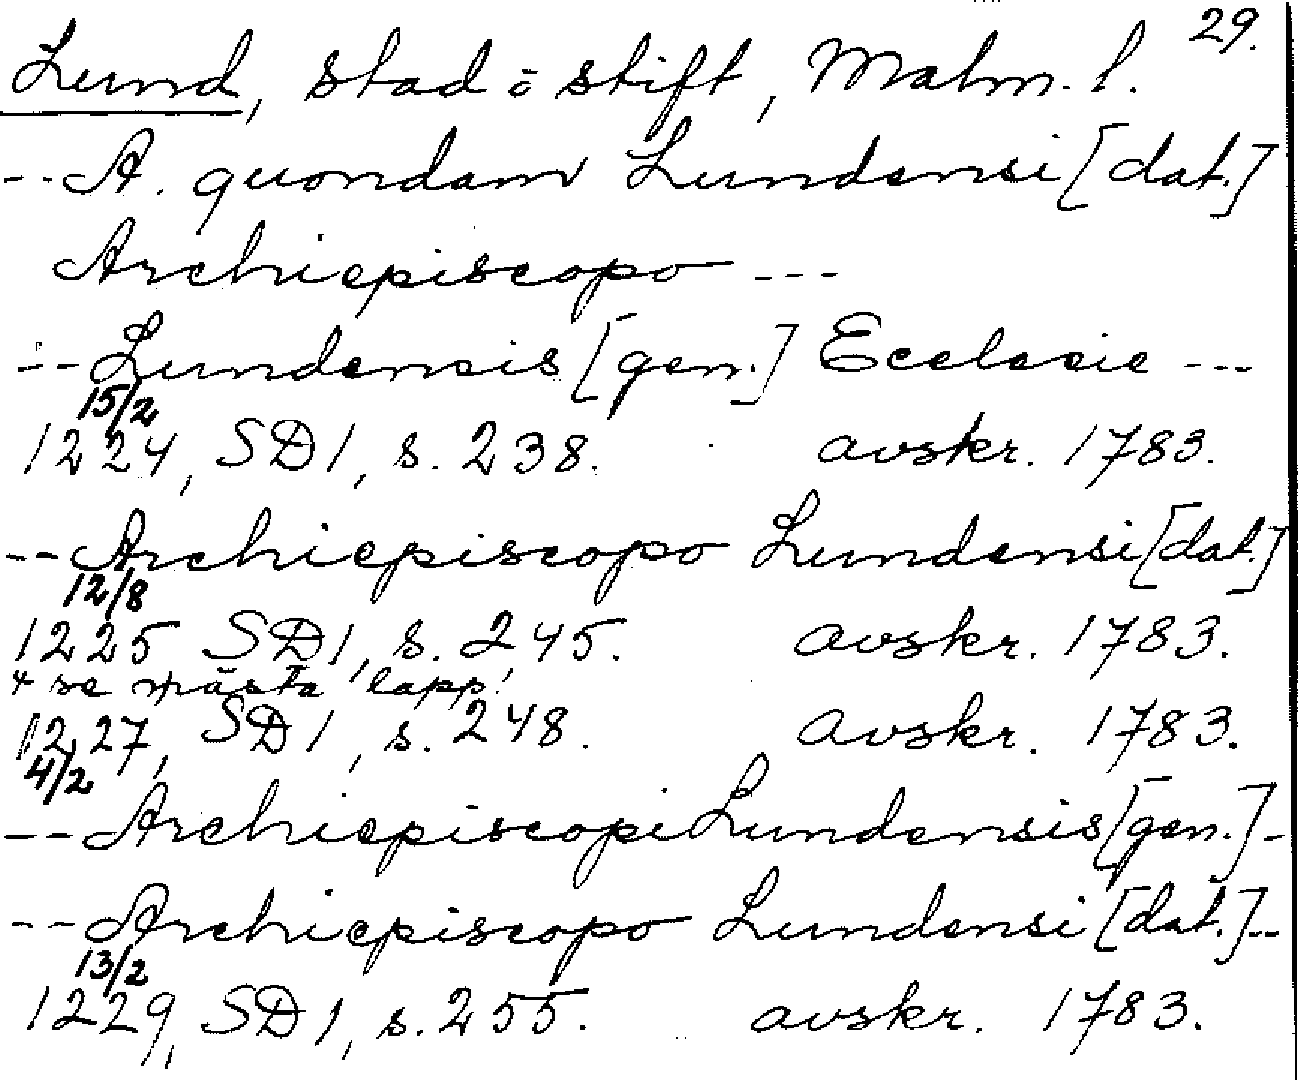 29.
Lund, stad o stift, Malm. l.
--A. quondam Lundensi [dat.]
Archiepiscopo ---
--Lundensis [gen.] Ecclesie ---
15/2
1224, SD1, s. 238. avskr. 1783.
--Archiepiscopo Lundensi [dat.]
12/8
1225, SD1, s. 245. avskr. 1783.
+ se nästa lapp!
1227, SD1, s. 248. avskr. 1783.
4/2
--Archiepiscopi Lundensis [gen.]-
--Archiepiscopo Lundensi [dat.]--
13/2
1229, SD1, s. 255. avskr. 1783.